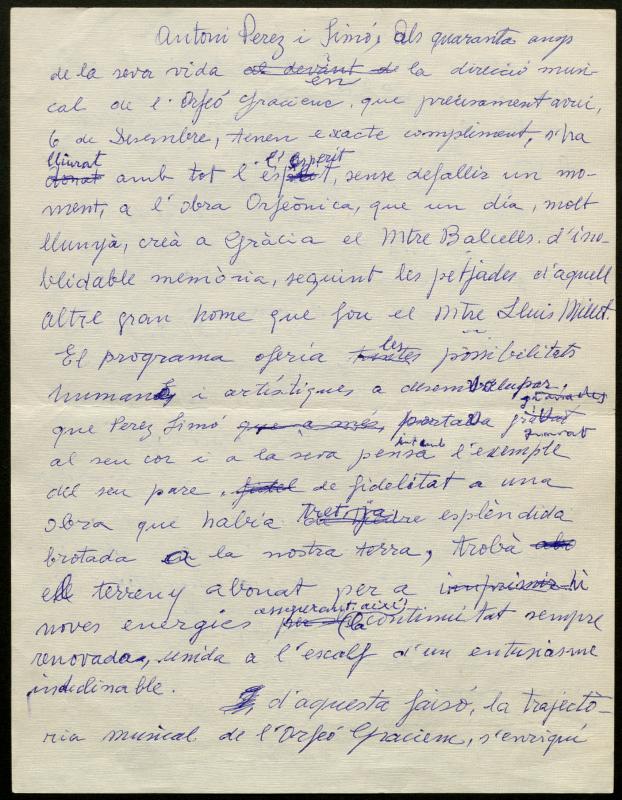 Antoni Perez i Simó, als quaranta anys
de la seva vida al devant de en la direcció musi-
cal de l'Orfeó Gracienc, que precisament avui,
6 de Desembre, tenen exacte compliment, s'ha
lliurat
donat amb tot l'esperit, sense defallir un mo-
ment, a l'obra Orfeònica, que un dia, molt
llunyà, creà a Gràcia el Mtre Balcells d'ino-
blidable memòria, seguint les petjades d'aquell
altre gran home que fou el Mtre Lluis Millet.
El programa oferia les possibilitats
humanes i artístiques a desenvolupar,
que Perez Simó que a més, portava gravades
al seu cor i a la seva pensa l'exemple
del seu pare, fidel de fidelitat a una
obra que habia tret ja esplèndida
brotada a la nostra terra, trobà
el terreny abonat per a imprimir hi
noves energies assegurant així, la continuitat sempre
renovada, unida a l'escalf d'un entusiasme
indeclinable.
d'aquesta faisó, la trajectò-
ria musical de l'Orfeó Gracienc, s'enriquí